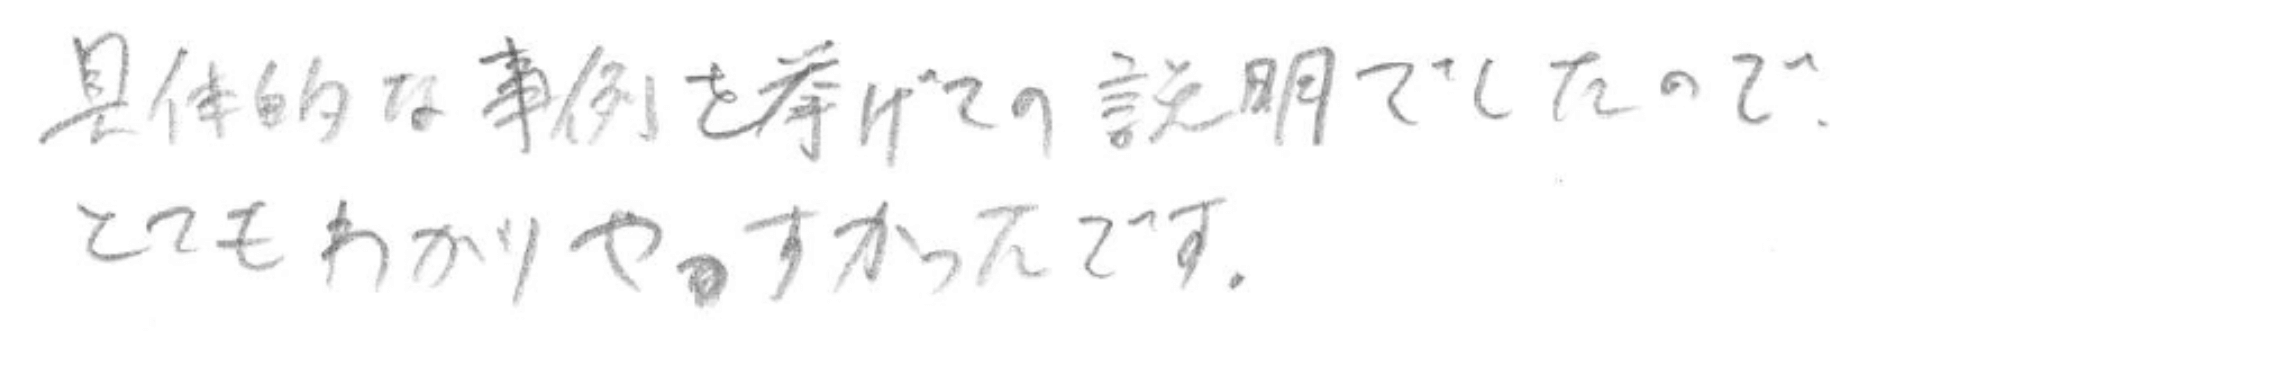 具体的な事例を挙げての説明でしたので、
とてもわかりやすかったです。